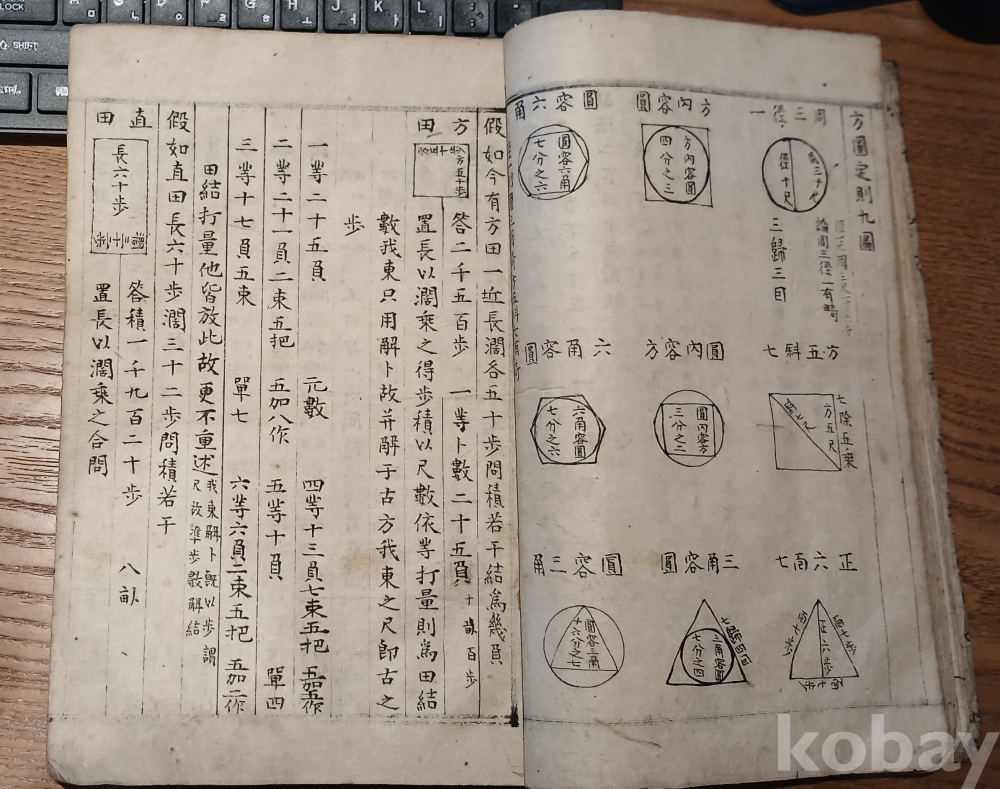 方圓定則九圖
周三徑一
周三十尺
徑十尺
三歸三因
論周三徑一有畸
方五斜七
七除五乗
方五尺
斜七尺
正六面七
正六步
面七步
面七步
面七步
方內容圓
方內容圓
四分之三
圓內容方
圓內容方
三分之二
三角容圓
三角容圓
七分之四
七歸四因
圓容六角
圓容六角
七分之六
六角容圓
六角容圓
七分之六
圓容三角
圓容三角
十六分之七
假如今有方田一坵長濶各五十步問積若干結爲幾負
方田
方五十步
答二千五百步 一等卜數二十五負 十畒百步
置長以濶乗之得步積以尺數依等打量則爲田結
數我東只用解卜故并解于古方我東之尺即古之
步
一等二十五負 元數 四等十三負七束五把 五加五作
二等二十一負二束五把 五加八作 五等十負 單四
三等十七負五束 單七 六等六負二束五把 五加二作
田結打量他皆放此故更不重述 我東解卜旣以步謂
尺故準步數解結
假如直田長六十步濶三十二步問積若干
直田
長六十步
濶三十二步
答積一千九百二十步 八畒
置長以濶乗之合問
kobay